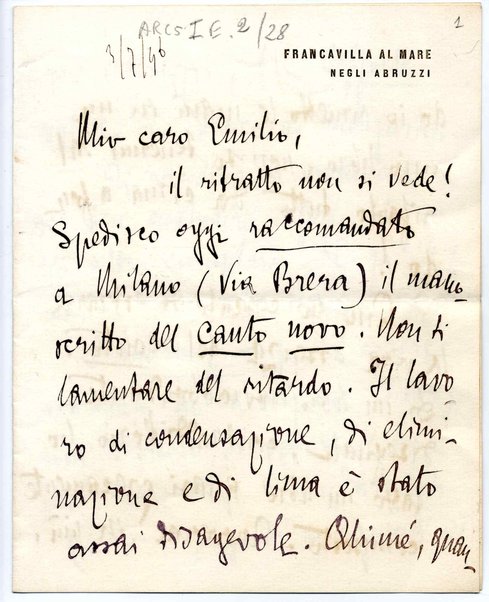 ARC5 I E. 2/28
1
3/7/96
FRANCAVILLA AL MARE
NEGLI ABRUZZI
Mio caro Emilio,
il ritratto non si vede!
Spedisco oggi raccomandato
a Milano (Via Brera) il mano
scritto del Canto novo. Non ti
lamentare del ritardo. Il lavo
ro di condensazione, di elimi-
nazione e di lima è stato
assai disagevole. Ohimé, quan-